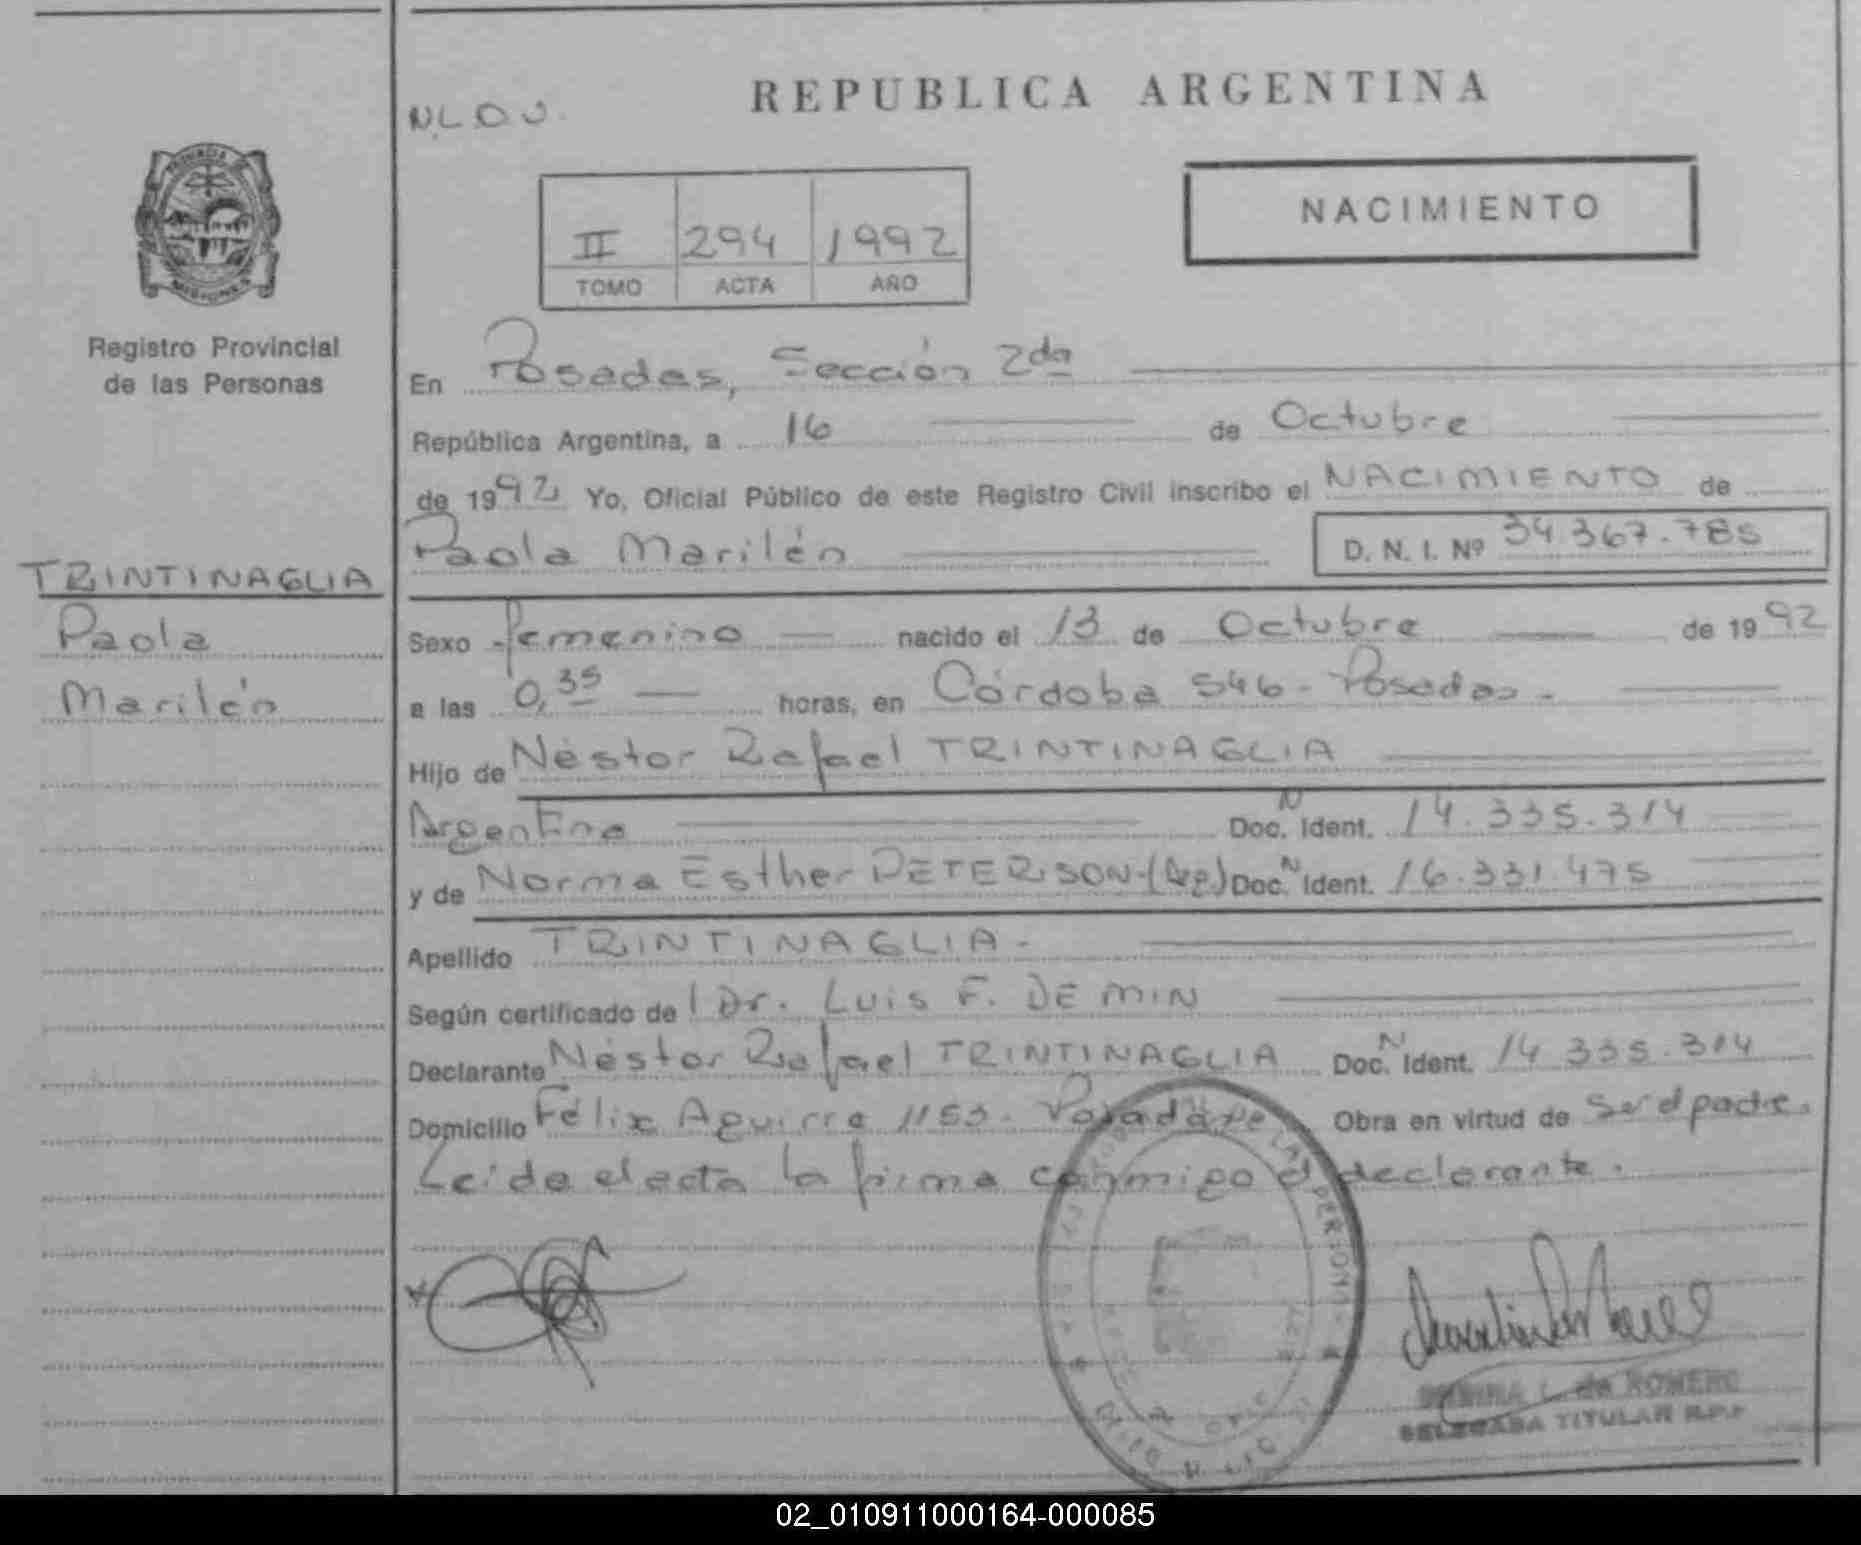 N.L.O.J.
REPUBLICA ARGENTINA
NACIMIENTO
II 294 1992
TOMO ACTA AÑO
PROVINCIA DE
MISIONES
Registro Provincial
de las Personas
TRINTINAGLIA
Paola
Marilén
En Posadas, Sección 2da
República Argentina, a 16 de Octubre
de 1992 Yo, Oficial Público de este Registro Civil inscribo el NACIMIENTO de
Paola Marilén D. N. I. Nº 34.367.785
Sexo femenino nacido el 13 de Octubre de 1992
a las 0,35 horas, en Córdoba 546 - Posadas -
Hijo de Néstor Rafael TRINTINAGLIA
Argentino Doc. N Ident. 14.335.314
y de Norma Esther PETERSON - (Arg) Doc. N Ident. 16.331.475
Apellido TRINTINAGLIA -
Según certificado de l Dr. Luis F. DE MIN
Declarante Néstor Rafael TRINTINAGLIA Doc. N Ident. 14.335.314
Domicilio Félix Aguirre 1153 - Posadas Obra en virtud de Ser el padre.
Leída el acta la firma conmigo el declarante.
DE LAS PERSONAS
L. de ROMERO
DELEGADA TITULAR R.P.P
02_010911000164-000085